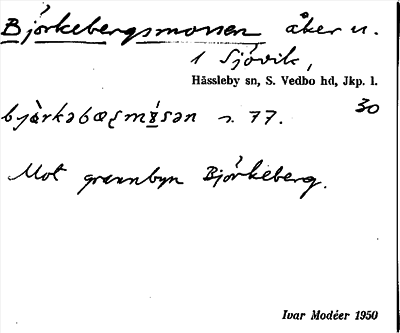 Björkebergsmossen åker n.
1 Sjövik,
Hässleby sn, S. Vedbo hd, Jkp. l.
30
n. 77.
Mot grannbyn Björkeberg.
Ivar Modéer 1950